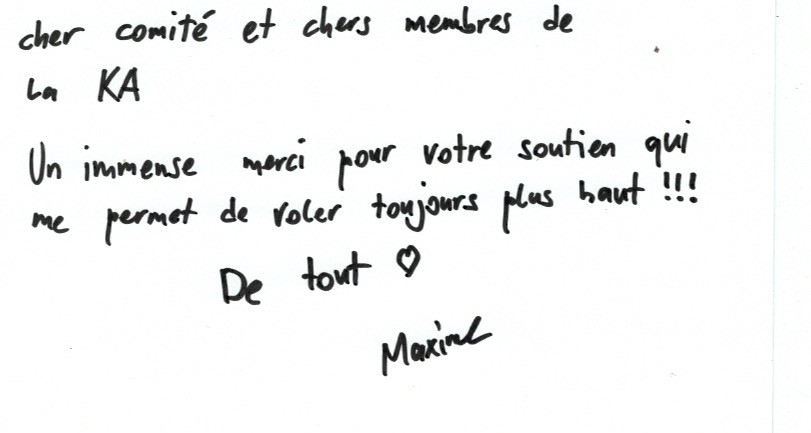 cher comité et chers membres de
La KA
Un immense merci pour votre soutien qui
me permet de voler toujours plus haut !!!
De tout ♡
Maxime